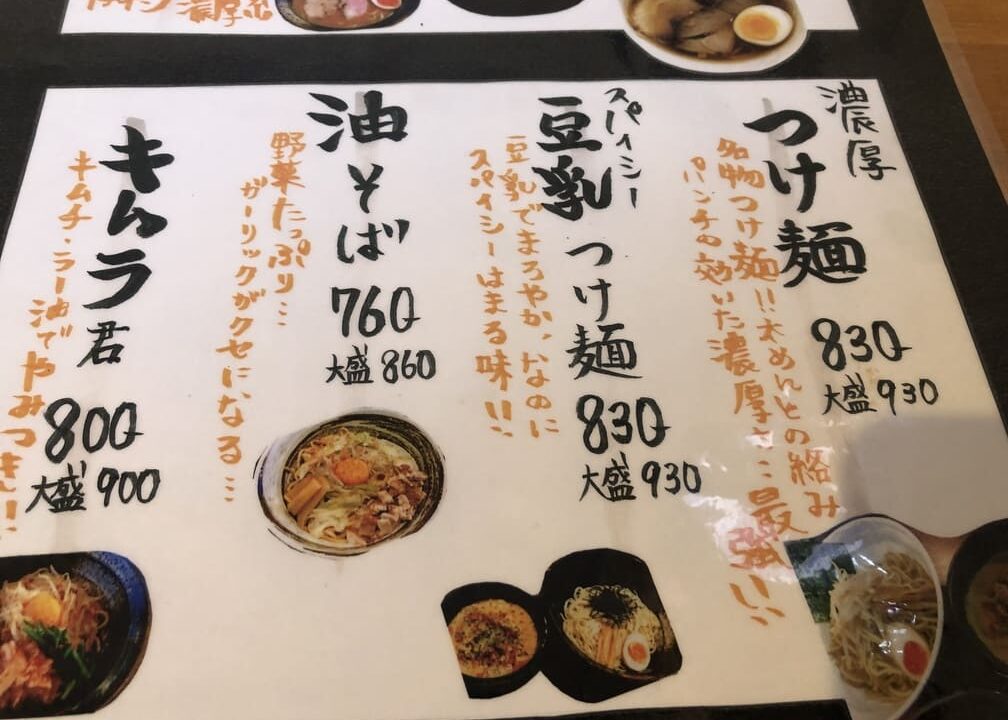 濃厚
つけ麺
830
大盛 930
名物つけ麺!!太めんとの絡み
パンチの効いた濃厚さ…最強!!
スパイシー
豆乳つけ麺
830
大盛 930
豆乳でまろやか、なのに
スパイシーはまる味!!
油そば
760
大盛 860
野菜たっぷり…
ガーリックがクセになる…
キムラ君
800
大盛 900
キムチ・ラー油でやみつき!!